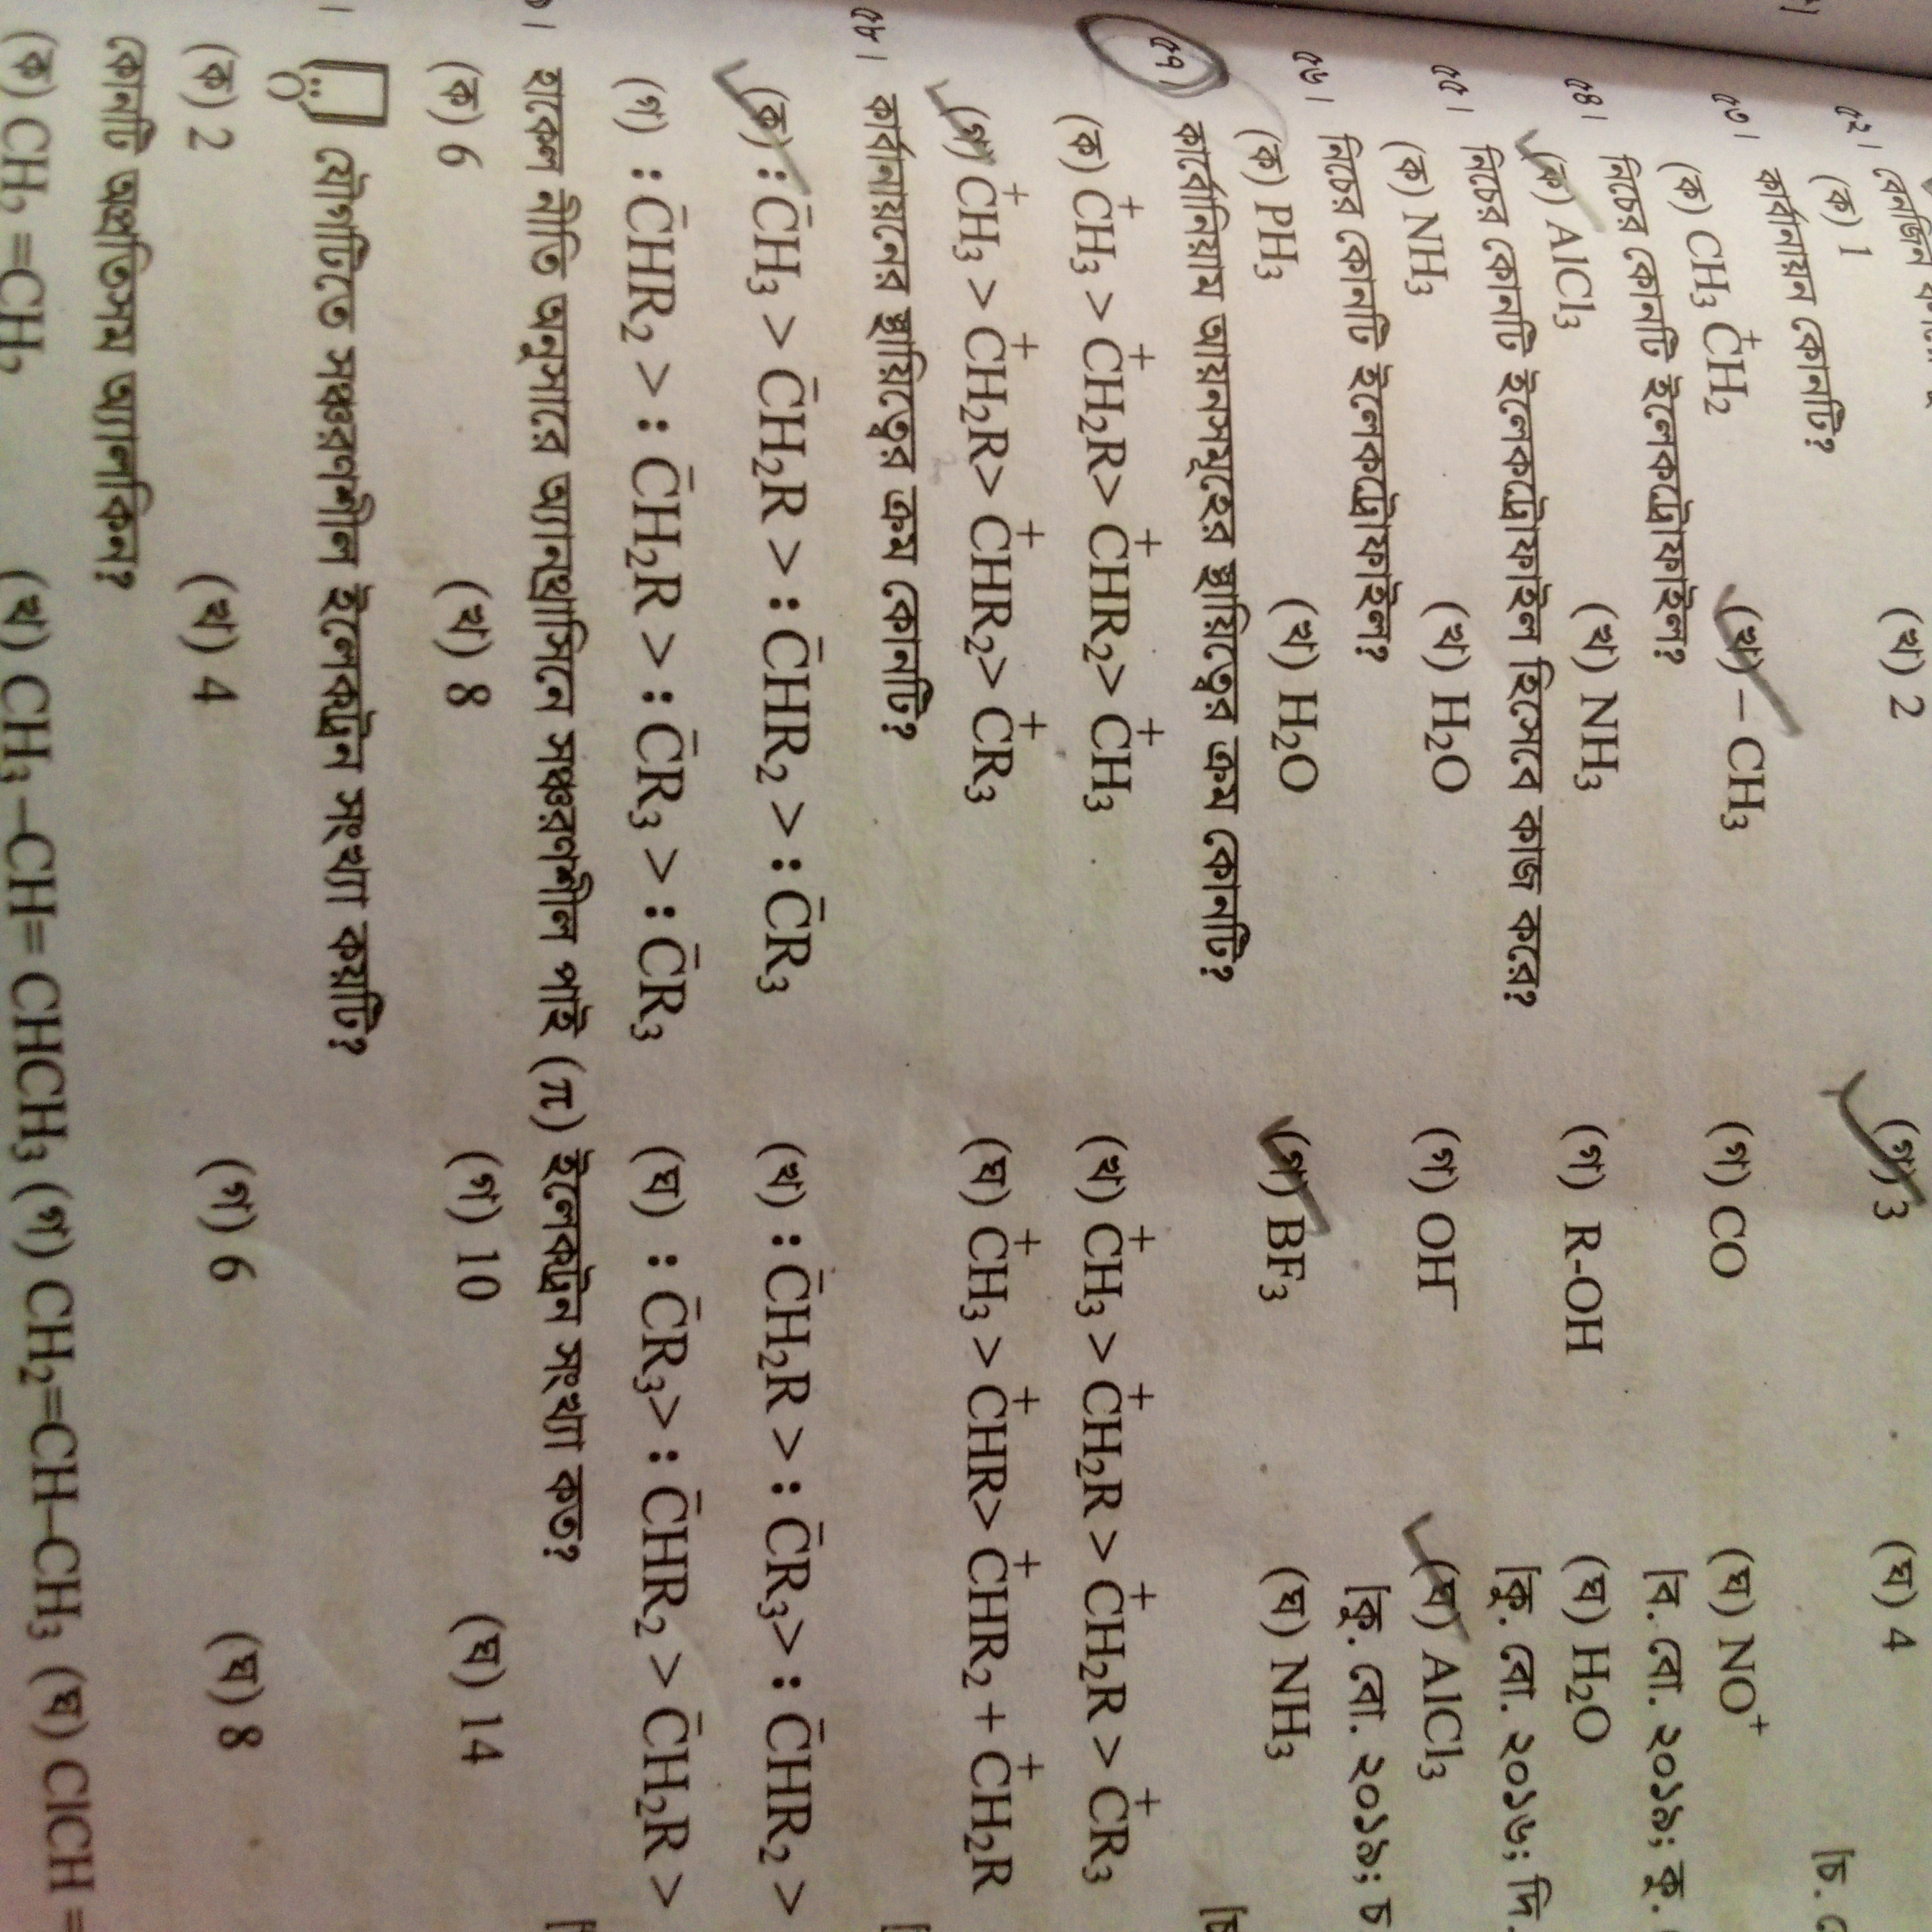 (ক) 1 (খ) 2 (গ) 3 (ঘ) 4
৫২।
কার্বানায়ন কোনটি?
৫৩। (ক) CH₃C⁺H₂ (খ) – CH₃ (গ) CO (ঘ) NO⁺
নিচের কোনটি ইলেকট্রোফাইল? [ব. বো. ২০১৯; কু.
৫৪। (ক) AlCl₃ (খ) NH₃ (গ) R-OH (ঘ) H₂O
নিচের কোনটি ইলেকট্রোফাইল হিসেবে কাজ করে? [কু. বো. ২০১৬; দি.
৫৫। (ক) NH₃ (খ) H₂O (গ) OH⁻ (ঘ) AlCl₃
নিচের কোনটি ইলেকট্রোফাইল? [কু. বো. ২০১৯; চ
৫৬। (ক) PH₃ (খ) H₂O (গ) BF₃ (ঘ) NH₃
৫৭। কার্বোনিয়াম আয়নসমূহের স্থায়িত্বের ক্রম কোনটি?
(ক) C⁺H₃ > C⁺H₂R> C⁺HR₂> C⁺H₃ (খ) C⁺H₃ > C⁺H₂R > C⁺H₂R > C⁺R₃
(গ) C⁺H₃ > C⁺H₂R> C⁺HR₂> C⁺R₃ (ঘ) C⁺H₃ > C⁺HR> C⁺HR₂ + C⁺H₂R
৫৮। কার্বানায়নের স্থায়িত্বের ক্রম কোনটি?
(ক) : C̄H₃ > C̄H₂R > : C̄HR₂ > : C̄R₃ (খ) : C̄H₂R > : C̄R₃> : C̄HR₂ >
(গ) : C̄HR₂ > : C̄H₂R > : C̄R₃ > : C̄R₃ (ঘ) : C̄R₃> : C̄HR₂ > C̄H₂R >
হাকেল নীতি অনুসারে অ্যানথ্রাসিনে সঞ্চরণশীল পাই (π) ইলেকট্রন সংখ্যা কত?
(ক) 6 (খ) 8 (গ) 10 (ঘ) 14
যৌগটিতে সঞ্চরণশীল ইলেকট্রন সংখ্যা কয়টি?
(ক) 2 (খ) 4 (গ) 6 (ঘ) 8
কোনটি অপ্রতিসম অ্যালকিন?
(ক) CH₂ =CH₂ (খ) CH₃ –CH= CHCH₃ (গ) CH₂=CH–CH₃ (ঘ) ClCH =